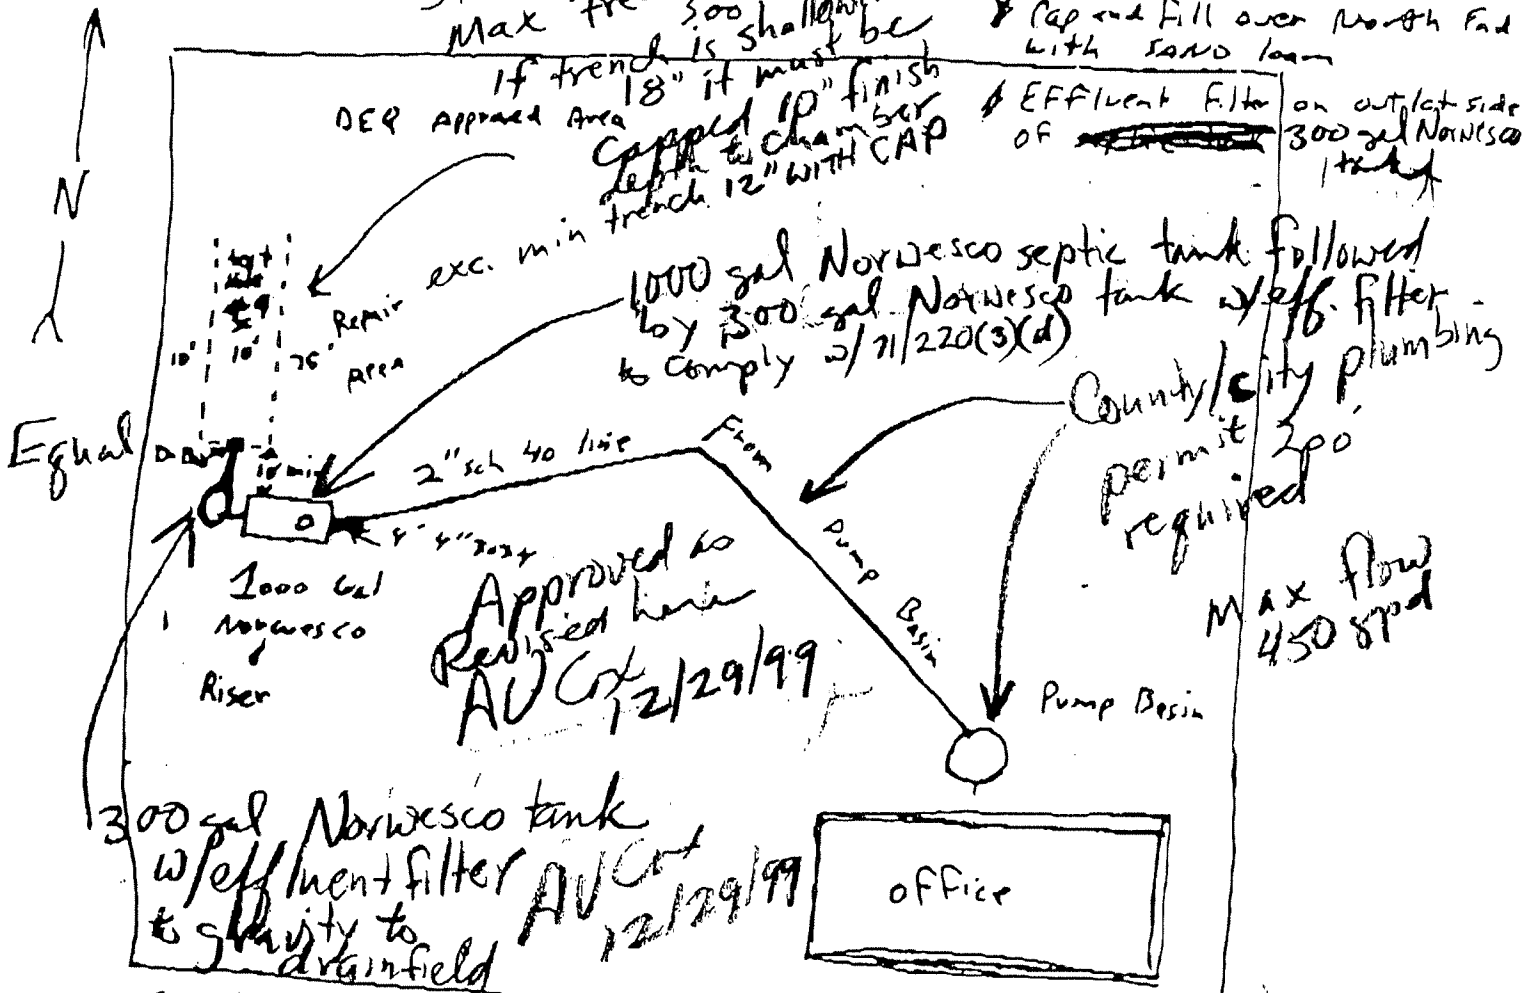 Max
300'
If trench is shallower
18" it must be
capped 10" finish
depth to chamber
exc. min trench 12" WITH CAP
Cap and Fill over North End
with SAND loam
EFFluent Filter on outlet side
of 300 gal Norwesco
tank
DEQ Approved Area
N
Repair
Area
10'
10'
75'
1000 gal Norwesco septic tank followed
by 300 gal Norwesco tank w/eff. filter
to comply w/71/220(3)(d)
County/city plumbing
permit 200'
required
Equal
10' min
2" sch 40 line
From
Pump
Basin
4' 4" 3034
1000 Gal
Norwesco
Riser
Approved as
Revised here
AV Cox
12/29/99
Max flow
450 gpd
Pump Basin
300 gal Norwesco tank
w/effluent filter
to gravity to
drainfield
AV Cox
12/29/99
office